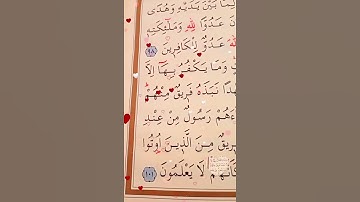 بَيْنَ يَدَيْهِ وَهُدًى
عَدُوًّا لِلّٰهِ وَمَلٰٓئِكَتِهِ
عَدُوٌّ لِلْكَافِرِينَ ﴿٩٨﴾
وَمَا يَكْفُرُ بِهَا إِلَّا
نَبَذَهُ فَرِيقٌ مِنْهُمْ
اءَهُمْ رَسُولٌ مِنْ عِنْدِ
رِيقٌ مِنَ الَّذِينَ أُوتُوا
كَأَنَّهُمْ لَا يَعْلَمُونَ ﴿١٠١﴾